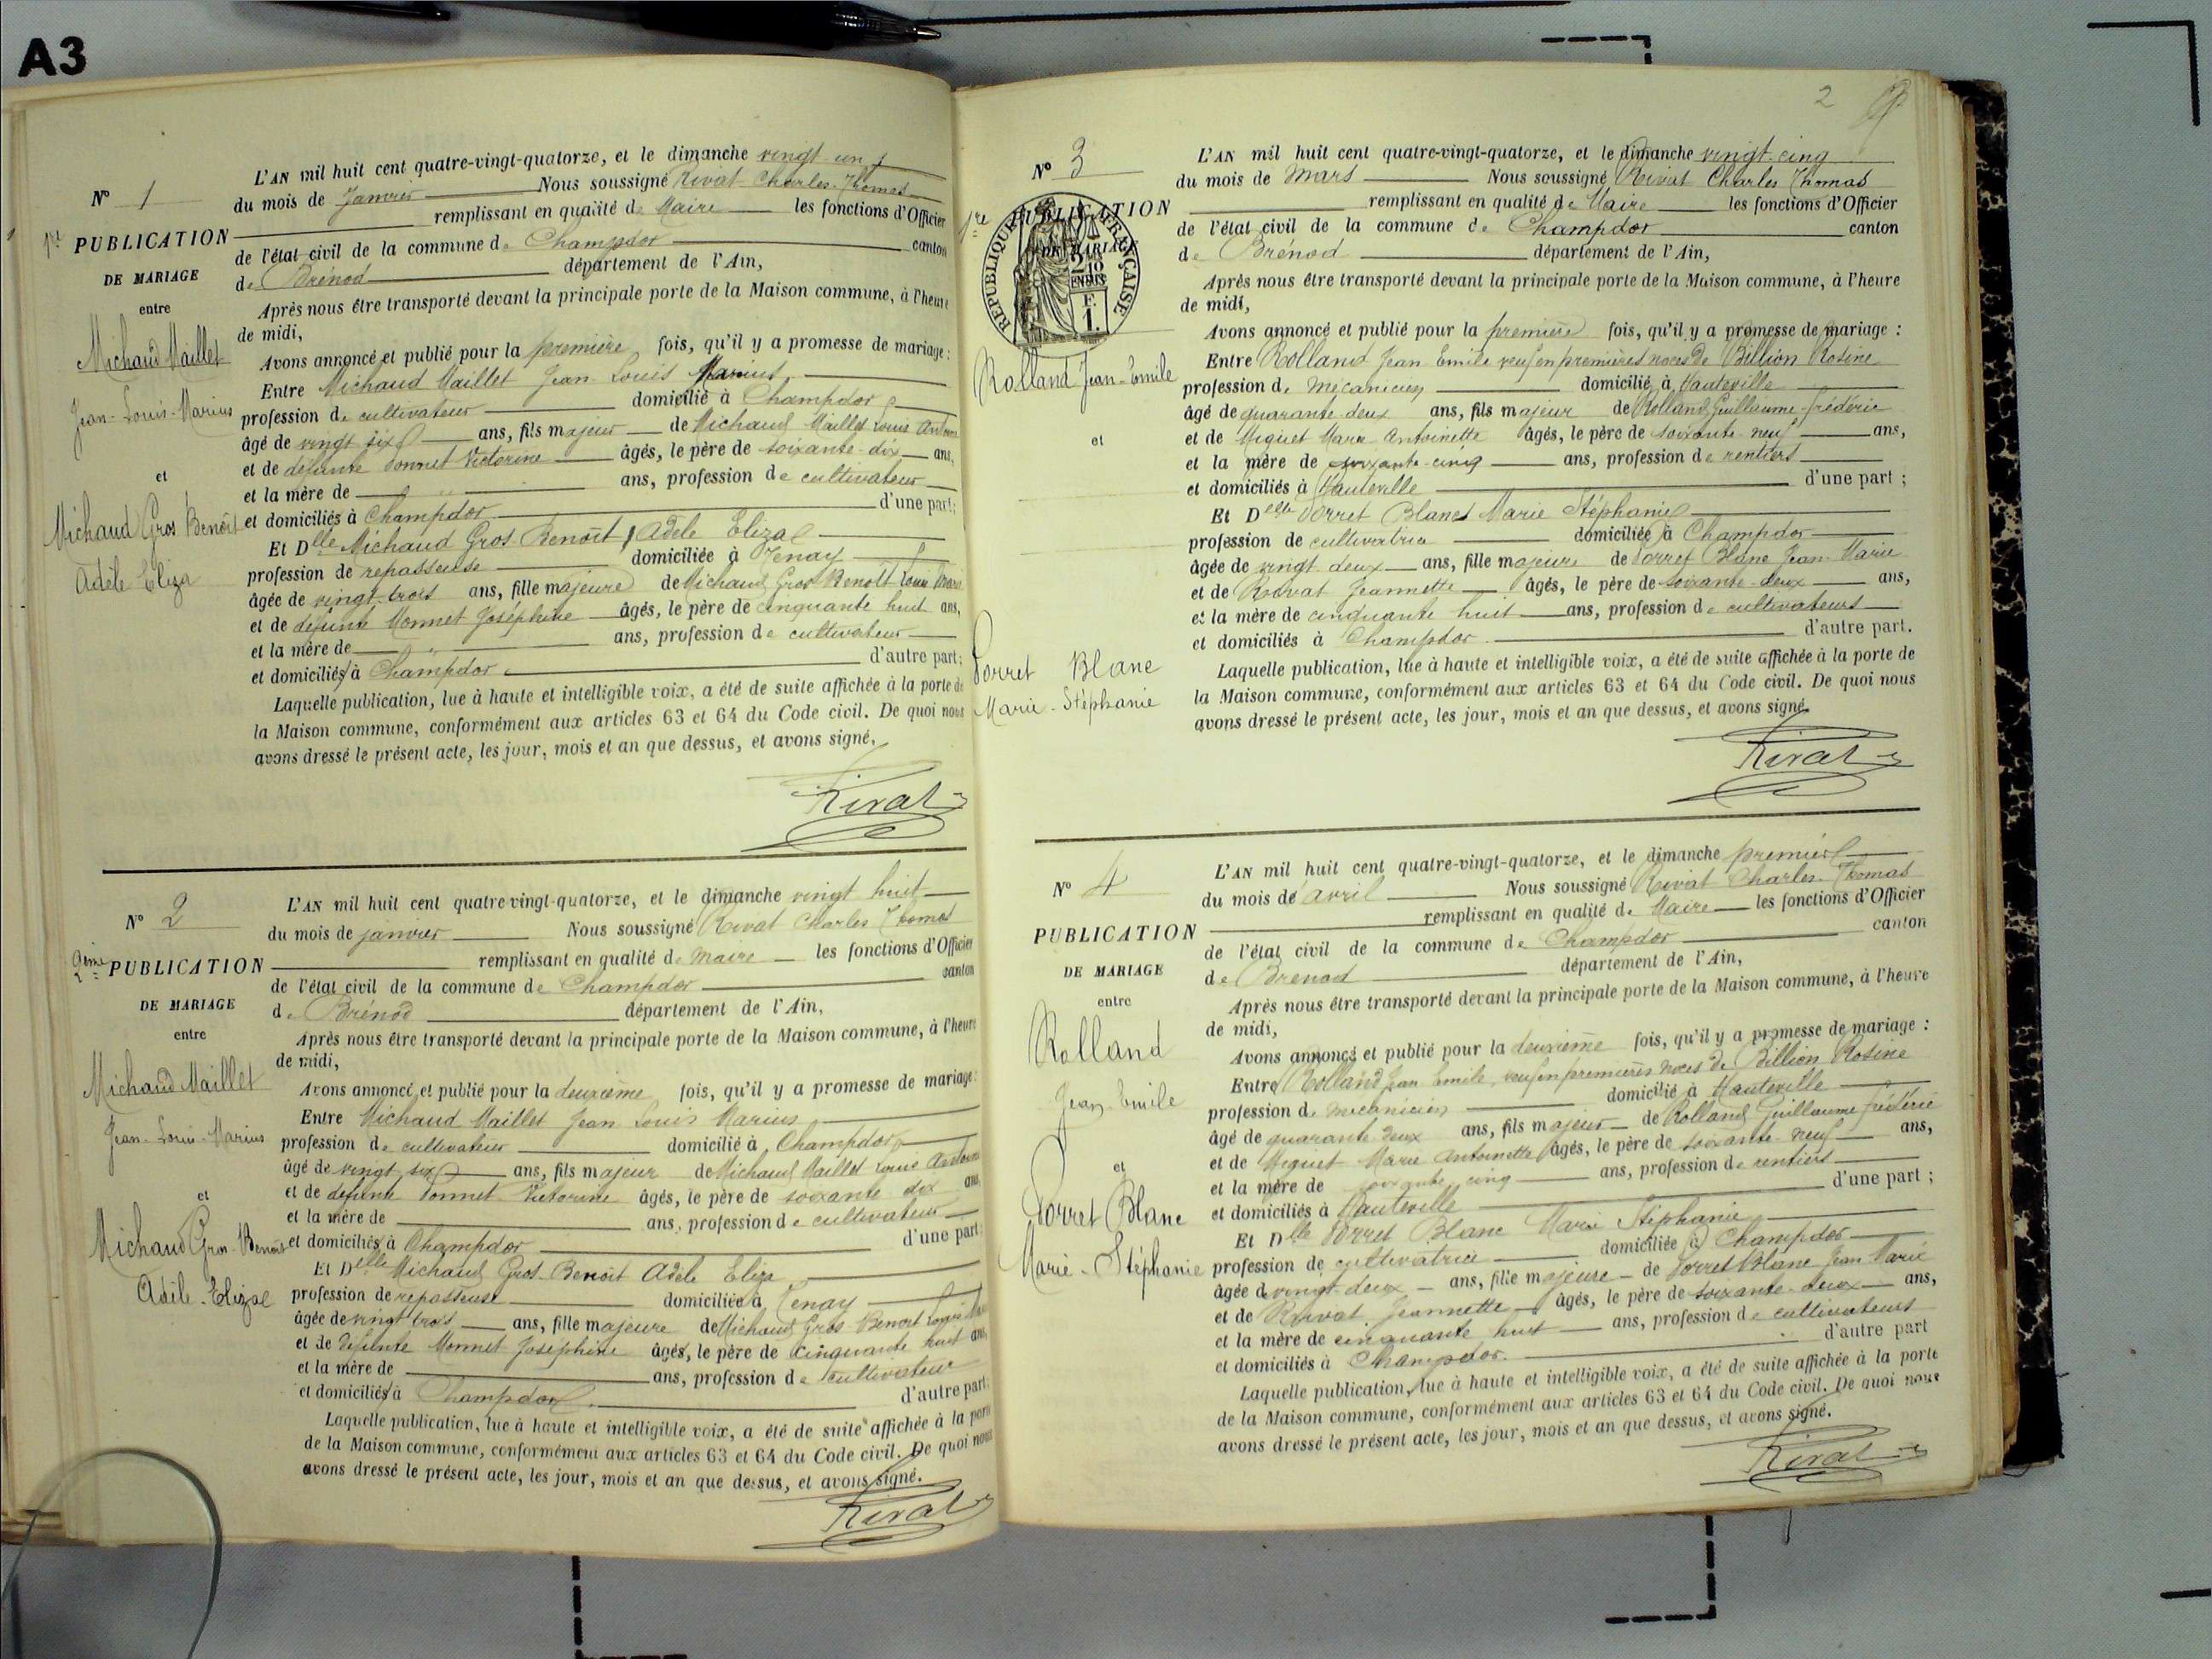 A3
N° 1
1re PUBLICATION
DE MARIAGE
entre
Michaud Maillet
Jean-Louis-Marius
et
Michaud Gros Benoît
Adèle Eliza
L'AN mil huit cent quatre-vingt-quatorze, et le dimanche vingt-un
du mois de Janvier Nous soussigné Rivat Charles-Thomas
remplissant en qualité de Maire les fonctions d'Officier
de l'état civil de la commune de Champdor canton
de Brénod département de l'Ain,
Après nous être transporté devant la principale porte de la Maison commune, à l'heure
de midi,
Avons annoncé et publié pour la première fois, qu'il y a promesse de mariage :
Entre Michaud Maillet Jean-Louis Marius
profession de cultivateur domicilié à Champdor
âgé de vingt six ans, fils majeur de Michaud Maillet Louis
et de défunte Tonnet Victorine âgés, le père de soixante-dix ans,
et la mère de ans, profession de cultivateur
et domiciliés à Champdor d'une part;
Et Dlle Michaud Gros-Benoît Adèle Eliza
profession de repasseuse domiciliée à Tenay
âgée de vingt-trois ans, fille majeure de Michaud Gros Benoît Louis
et de défunte Monnet Joséphine âgés, le père de cinquante huit ans,
et la mère de ans, profession de cultivateur
et domiciliés à Champdor d'autre part;
Laquelle publication, lue à haute et intelligible voix, a été de suite affichée à la porte de
la Maison commune, conformément aux articles 63 et 64 du Code civil. De quoi nous
avons dressé le présent acte, les jour, mois et an que dessus, et avons signé.
Rivat
N° 2
2ème PUBLICATION
DE MARIAGE
entre
Michaud Maillet
Jean-Louis-Marius
et
Michaud Gros-Benoît
Adèle-Eliza
L'AN mil huit cent quatre-vingt-quatorze, et le dimanche vingt huit
du mois de janvier Nous soussigné Rivat Charles Thomas
remplissant en qualité de Maire les fonctions d'Officier
de l'état civil de la commune de Champdor canton
de Brénod département de l'Ain,
Après nous être transporté devant la principale porte de la Maison commune, à l'heure
de midi,
Avons annoncé et publié pour la deuxième fois, qu'il y a promesse de mariage :
Entre Michaud Maillet Jean Louis Marius
profession de cultivateur domicilié à Champdor
âgé de vingt six ans, fils majeur de Michaud Maillet Louis
et de défunte Tonnet Victorine âgés, le père de soixante dix ans,
et la mère de ans, profession de cultivateur
et domiciliés à Champdor d'une part;
Et Delle Michaud Gros-Benoît Adèle Eliza
profession de repasseuse domiciliée à Tenay
âgée de vingt trois ans, fille majeure de Michaud Gros-Benoît Louis
et de défunte Monnet Joséphine âgés, le père de cinquante huit ans,
et la mère de ans, profession de cultivateur
et domiciliés à Champdor d'autre part;
Laquelle publication, lue à haute et intelligible voix, a été de suite affichée à la porte
de la Maison commune, conformément aux articles 63 et 64 du Code civil. De quoi nous
avons dressé le présent acte, les jour, mois et an que dessus, et avons signé.
Rivat
2
N° 3
1re PUBLICATION
DE MARIAGE
RÉPUBLIQUE FRANÇAISE
Rolland Jean-Emile
et
Porret Blanc
Marie-Stéphanie
L'AN mil huit cent quatre-vingt-quatorze, et le dimanche vingt-cinq
du mois de Mars Nous soussigné Rivat Charles Thomas
remplissant en qualité de Maire les fonctions d'Officier
de l'état civil de la commune de Champdor canton
de Brénod département de l'Ain,
Après nous être transporté devant la principale porte de la Maison commune, à l'heure
de midi,
Avons annoncé et publié pour la première fois, qu'il y a promesse de mariage :
Entre Rolland Jean Emile veuf en premières noces de Billion Rosine
profession de mécanicien domicilié à Hauteville
âgé de quarante-deux ans, fils majeur de Rolland Guillaume-frédéric
et de Miguet Marie Antoinette âgés, le père de soixante-neuf ans,
et la mère de soixante-cinq ans, profession de rentiers
et domiciliés à Hauteville d'une part ;
Et Delle Porret Blanc Marie Stéphanie
profession de cultivatrice domiciliée à Champdor
âgée de vingt-deux ans, fille majeure de Porret Blanc Jean-Marie
et de Rivat Jeannette âgés, le père de soixante-deux ans,
et la mère de cinquante huit ans, profession de cultivateurs
et domiciliés à Champdor d'autre part.
Laquelle publication, lue à haute et intelligible voix, a été de suite affichée à la porte de
la Maison commune, conformément aux articles 63 et 64 du Code civil. De quoi nous
avons dressé le présent acte, les jour, mois et an que dessus, et avons signé.
Rivat
N° 4
PUBLICATION
DE MARIAGE
entre
Rolland
Jean-Emile
et
Porret Blanc
Marie-Stéphanie
L'AN mil huit cent quatre-vingt-quatorze, et le dimanche premier
du mois de avril Nous soussigné Rivat Charles-Thomas
remplissant en qualité de Maire les fonctions d'Officier
de l'état civil de la commune de Champdor canton
de Brénod département de l'Ain,
Après nous être transporté devant la principale porte de la Maison commune, à l'heure
de midi,
Avons annoncé et publié pour la deuxième fois, qu'il y a promesse de mariage :
Entre Rolland Jean Emile, veuf en premières noces de Billion Rosine
profession de mécanicien domicilié à Hauteville
âgé de quarante deux ans, fils majeur de Rolland Guillaume frédéric
et de Miguet Marie Antoinette âgés, le père de soixante-neuf ans,
et la mère de soixante cinq ans, profession de rentiers
et domiciliés à Hauteville d'une part ;
Et Dlle Porret Blanc Marie Stéphanie
profession de cultivatrice domiciliée à Champdor
âgée de vingt-deux ans, fille majeure de Porret Blanc Jean Marie
et de Rivat Jeannette âgés, le père de soixante-deux ans,
et la mère de cinquante huit ans, profession de cultivateurs
et domiciliés à Champdor. d'autre part
Laquelle publication, lue à haute et intelligible voix, a été de suite affichée à la porte
de la Maison commune, conformément aux articles 63 et 64 du Code civil. De quoi nous
avons dressé le présent acte, les jour, mois et an que dessus, et avons signé.
Rivat